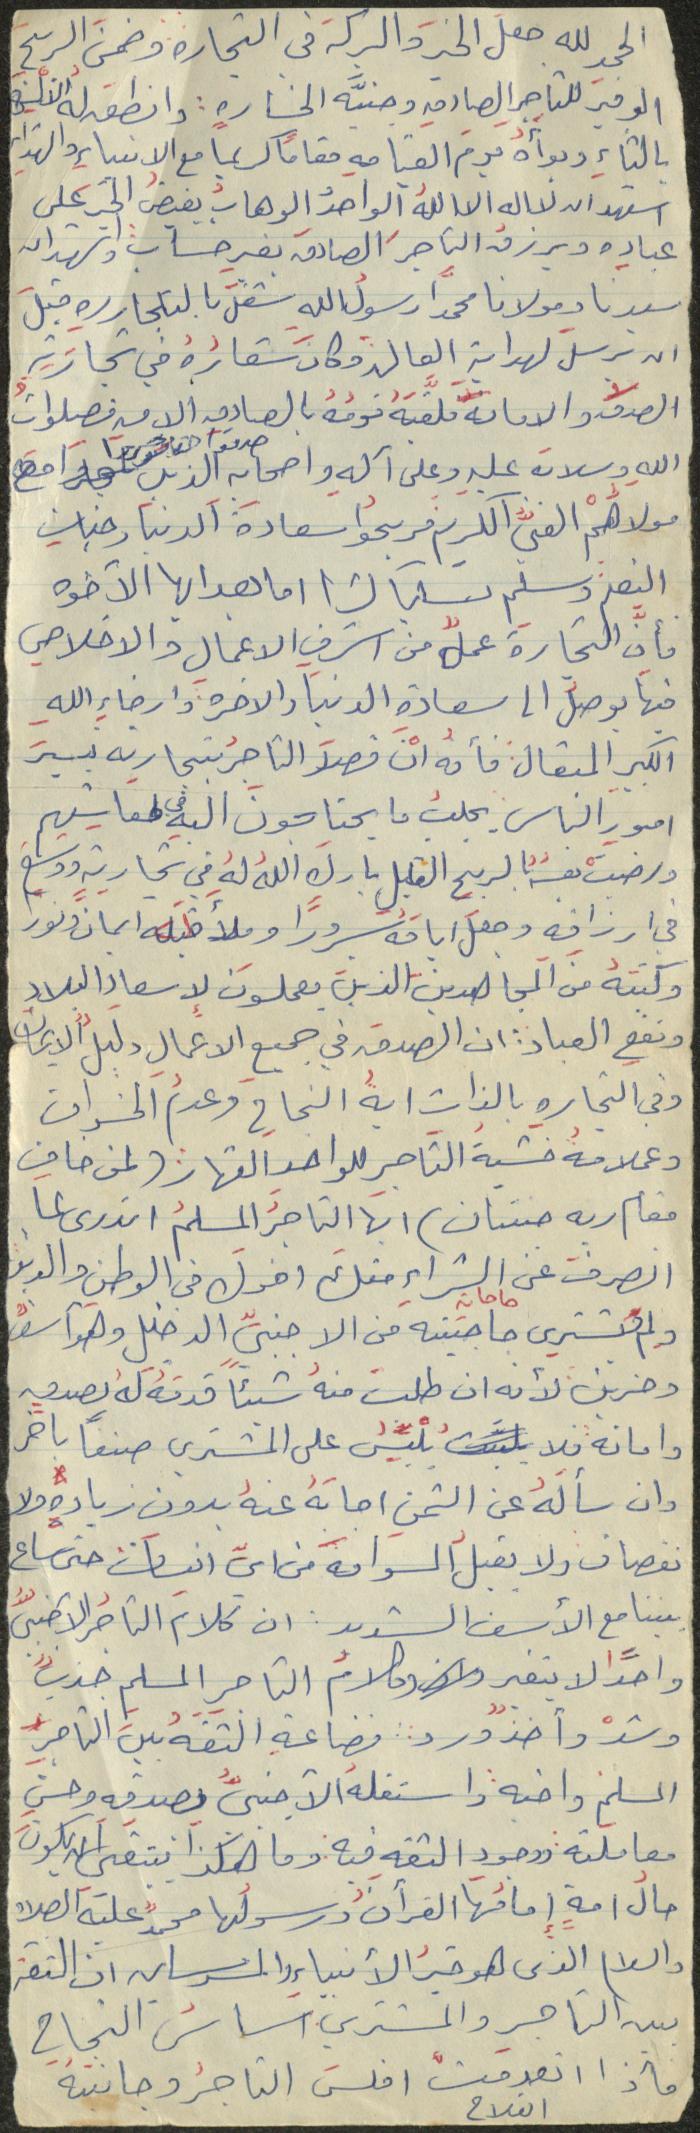 الحمد لله جعل الخير والبركة في التجارة وضمن الربح
الوفير للتاجر الصادق وجنبّه الخساره: وانطق له الألسنة
بالثناءِ وبوأهُ يوم القيامه مقاماً كريماً مع الانبياء والشهداء
اشهد ان لا اله الا اللهُ الواحدُ الوهابُ يفيضُ الخير على
عباده ويرزقُ التاجرَ الصادقَ بغير حساب واشهد ان
سيدنا ومولانا محمداً رسولُ الله شغلَ بالتجاره قبلَ
ان يرسلَ لهداية العالمِ وكانَ شعارُهُ في تجارتهِ
الصدقُ والامانهُ فلقبّهُ قومُهُ بالصادقِ الامين فصلواتُ
الله وسلامه عليه وعلى آله واصحابه الذين صدقوا اخلصوا مع
مولاهُمْ الغنيّ الكريم فربحُوا سعادةَ الدنيا وجناتِ
النعيم وسلم تسليماً كثيرا اما بعد ايها الأخوه
فأنّ التجارةَ عملٌ من اشرفِ الاعمالِ والاخلاص
فيها يوصلُ الى سعادةِ الدنيا والاخره وارضاءِ اللهِ
الكبير المتعال: فأنه انْ قصدَ التاجرُ بتجارته تيسيرَ
امورِ الناس بجلبِ ما يحتاجون اليه في معاشهم
ورضيتْ نفسُهُ بالربح القليل باركَ اللهُ لهُ في تجارتهِ ووسّع
في ارزاقه وجعلَ ايامَهُ سُرورًا وملأ قلبَه ايمانًا ونورًا
وكتبَهُ منَ المجاهدين الذين يعملون لاسعادِ البلاد
ونفعِ العباد: ان الصدق في جميع الاعمالِ دليلُ الايمان
وفي التجاره بالذات ايةُ النجاح وعدمُ الخسران
وعلامةُ خشيةُ التاجر للواحد القهار: (لمن خاف
مقام ربه جنتان) ايها التاجرُ المسلمُ اتدري لما
انصرفَ عن الشراءِ منكَ اخوكَ في الوطن والدين
ولم يشتري حاجاته من الاجنبيّ الدخيل وهو آسفٌ
وحزين لأنه ان طلبَ منهُ شيئاً قدمَهُ لهُ بصدق
وامانه فلا يلبّسُ على المشتري صنفاً بآخر
وان سألهُ عن الثمن اجابَهُ عنهُ بدون زيادهٍ ولا
نقصان ولا يقبلُ المساومةَ من ايّ انسان حتى شاع
بيننا مع الأسف الشديد: ان كلامَ التاجر الاجنبيِّ
واحدًا لا يتغير وكلامُ التاجر المسلم جذبٌ
وشدٌ وأخذٌ ورد: فضاعة الثقةُ بين التاجرِ
المسلم واخيه واستغلهُ الأجنبيُّ بصدقه وحسنِ
معاملته ووجودِ الثقه فيه وما هكذا ينبغي ان يكونَ
حالُ امةٍ إمامُها القرآن ورسولُها محمدٌ عليه الصلاه
والسلام الذي هو خيرُ الأنبياءِ والمرسلين ان الثقه
بين التاجر والمشتري اساسُ النجاح
فأذا انعدمتْ افلسَ التاجرُ وجانبَهُ
الفلاح